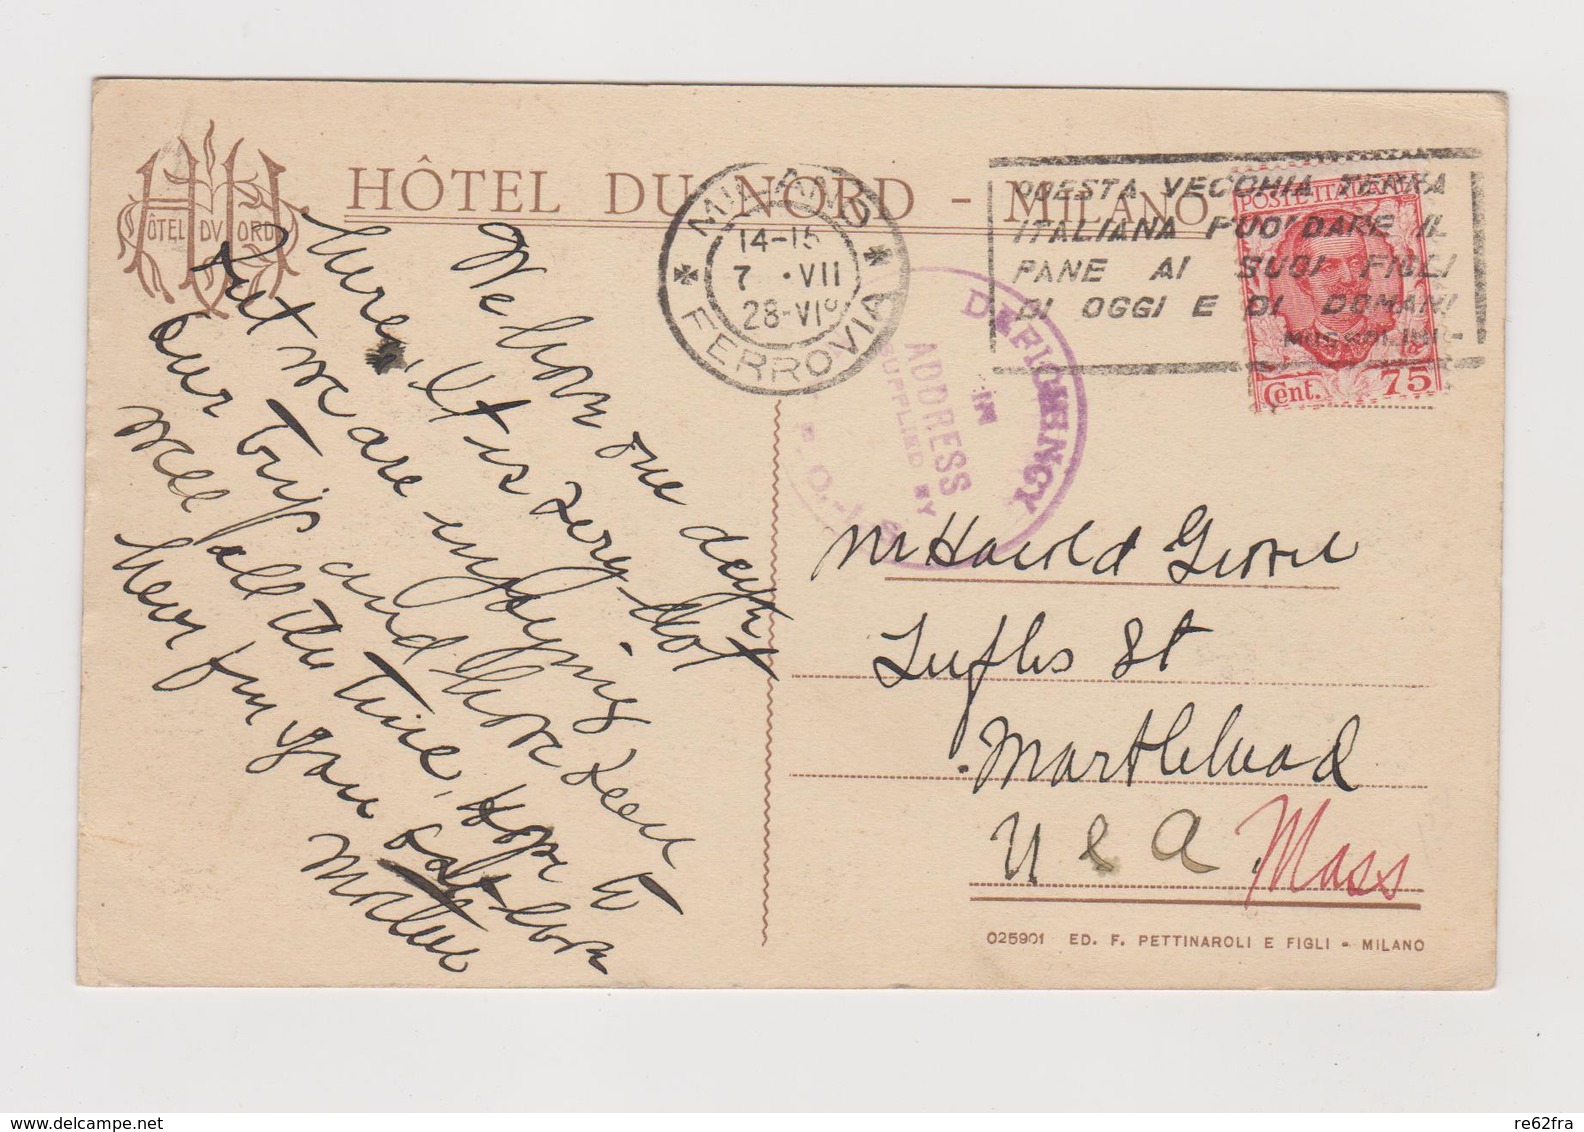 HÔTEL DU NORD - MILANO
HÔTEL DU NORD
MILANO
14-15
7 · VII
28-VI
FERROVIA
QUESTA VECCHIA TERRA
ITALIANA PUO' DARE IL
PANE AI SUOI FIGLI
DI OGGI E DI DOMANI
MUSSOLINI-
POSTE ITALIANE
Cent. 75
DEFICIENCY
IN
ADDRESS
SUPPLIED BY
P.O.
We have one day
here. It is very hot
but we are enjoying
our trip and have been
well all the time. Hope to
hear from you
Mother
Mr Harold
St
Marblehead
U S A Mass
025901 ED. F. PETTINAROLI E FIGLI - MILANO
delcampe.net
re62fra